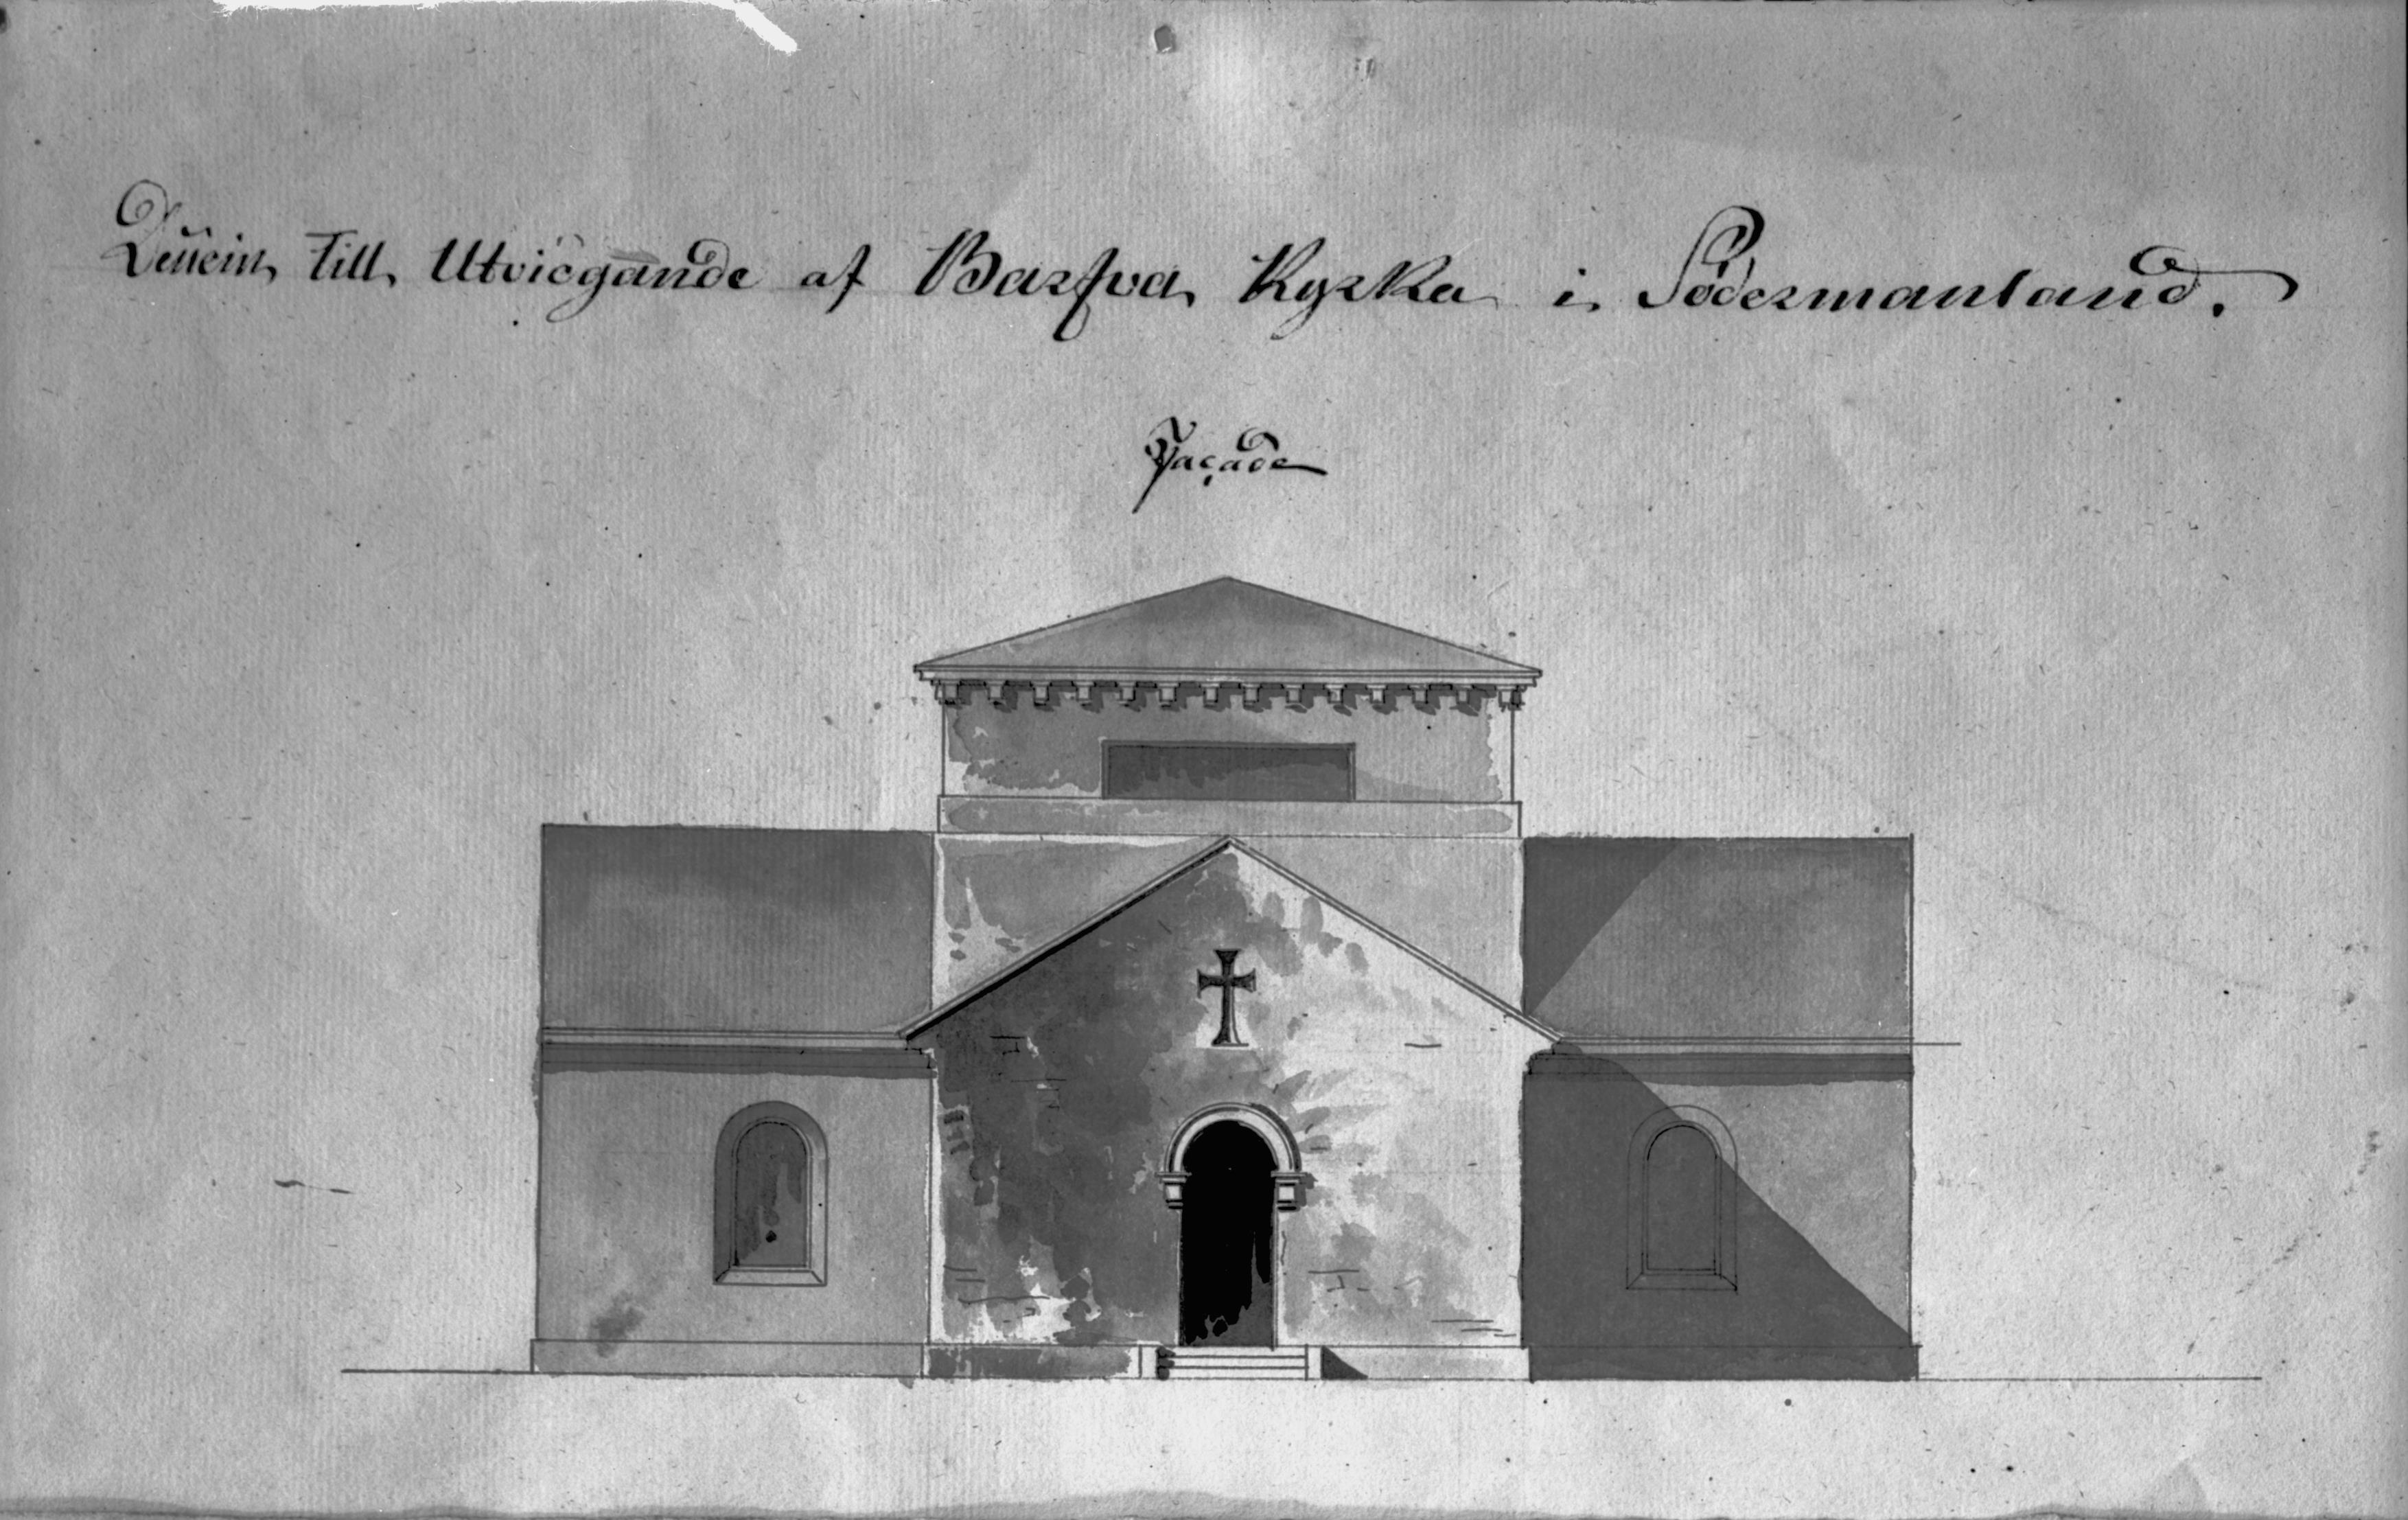 Dessein Till Utvidgande af Barfva Kyrka i Södermanland.
Façade